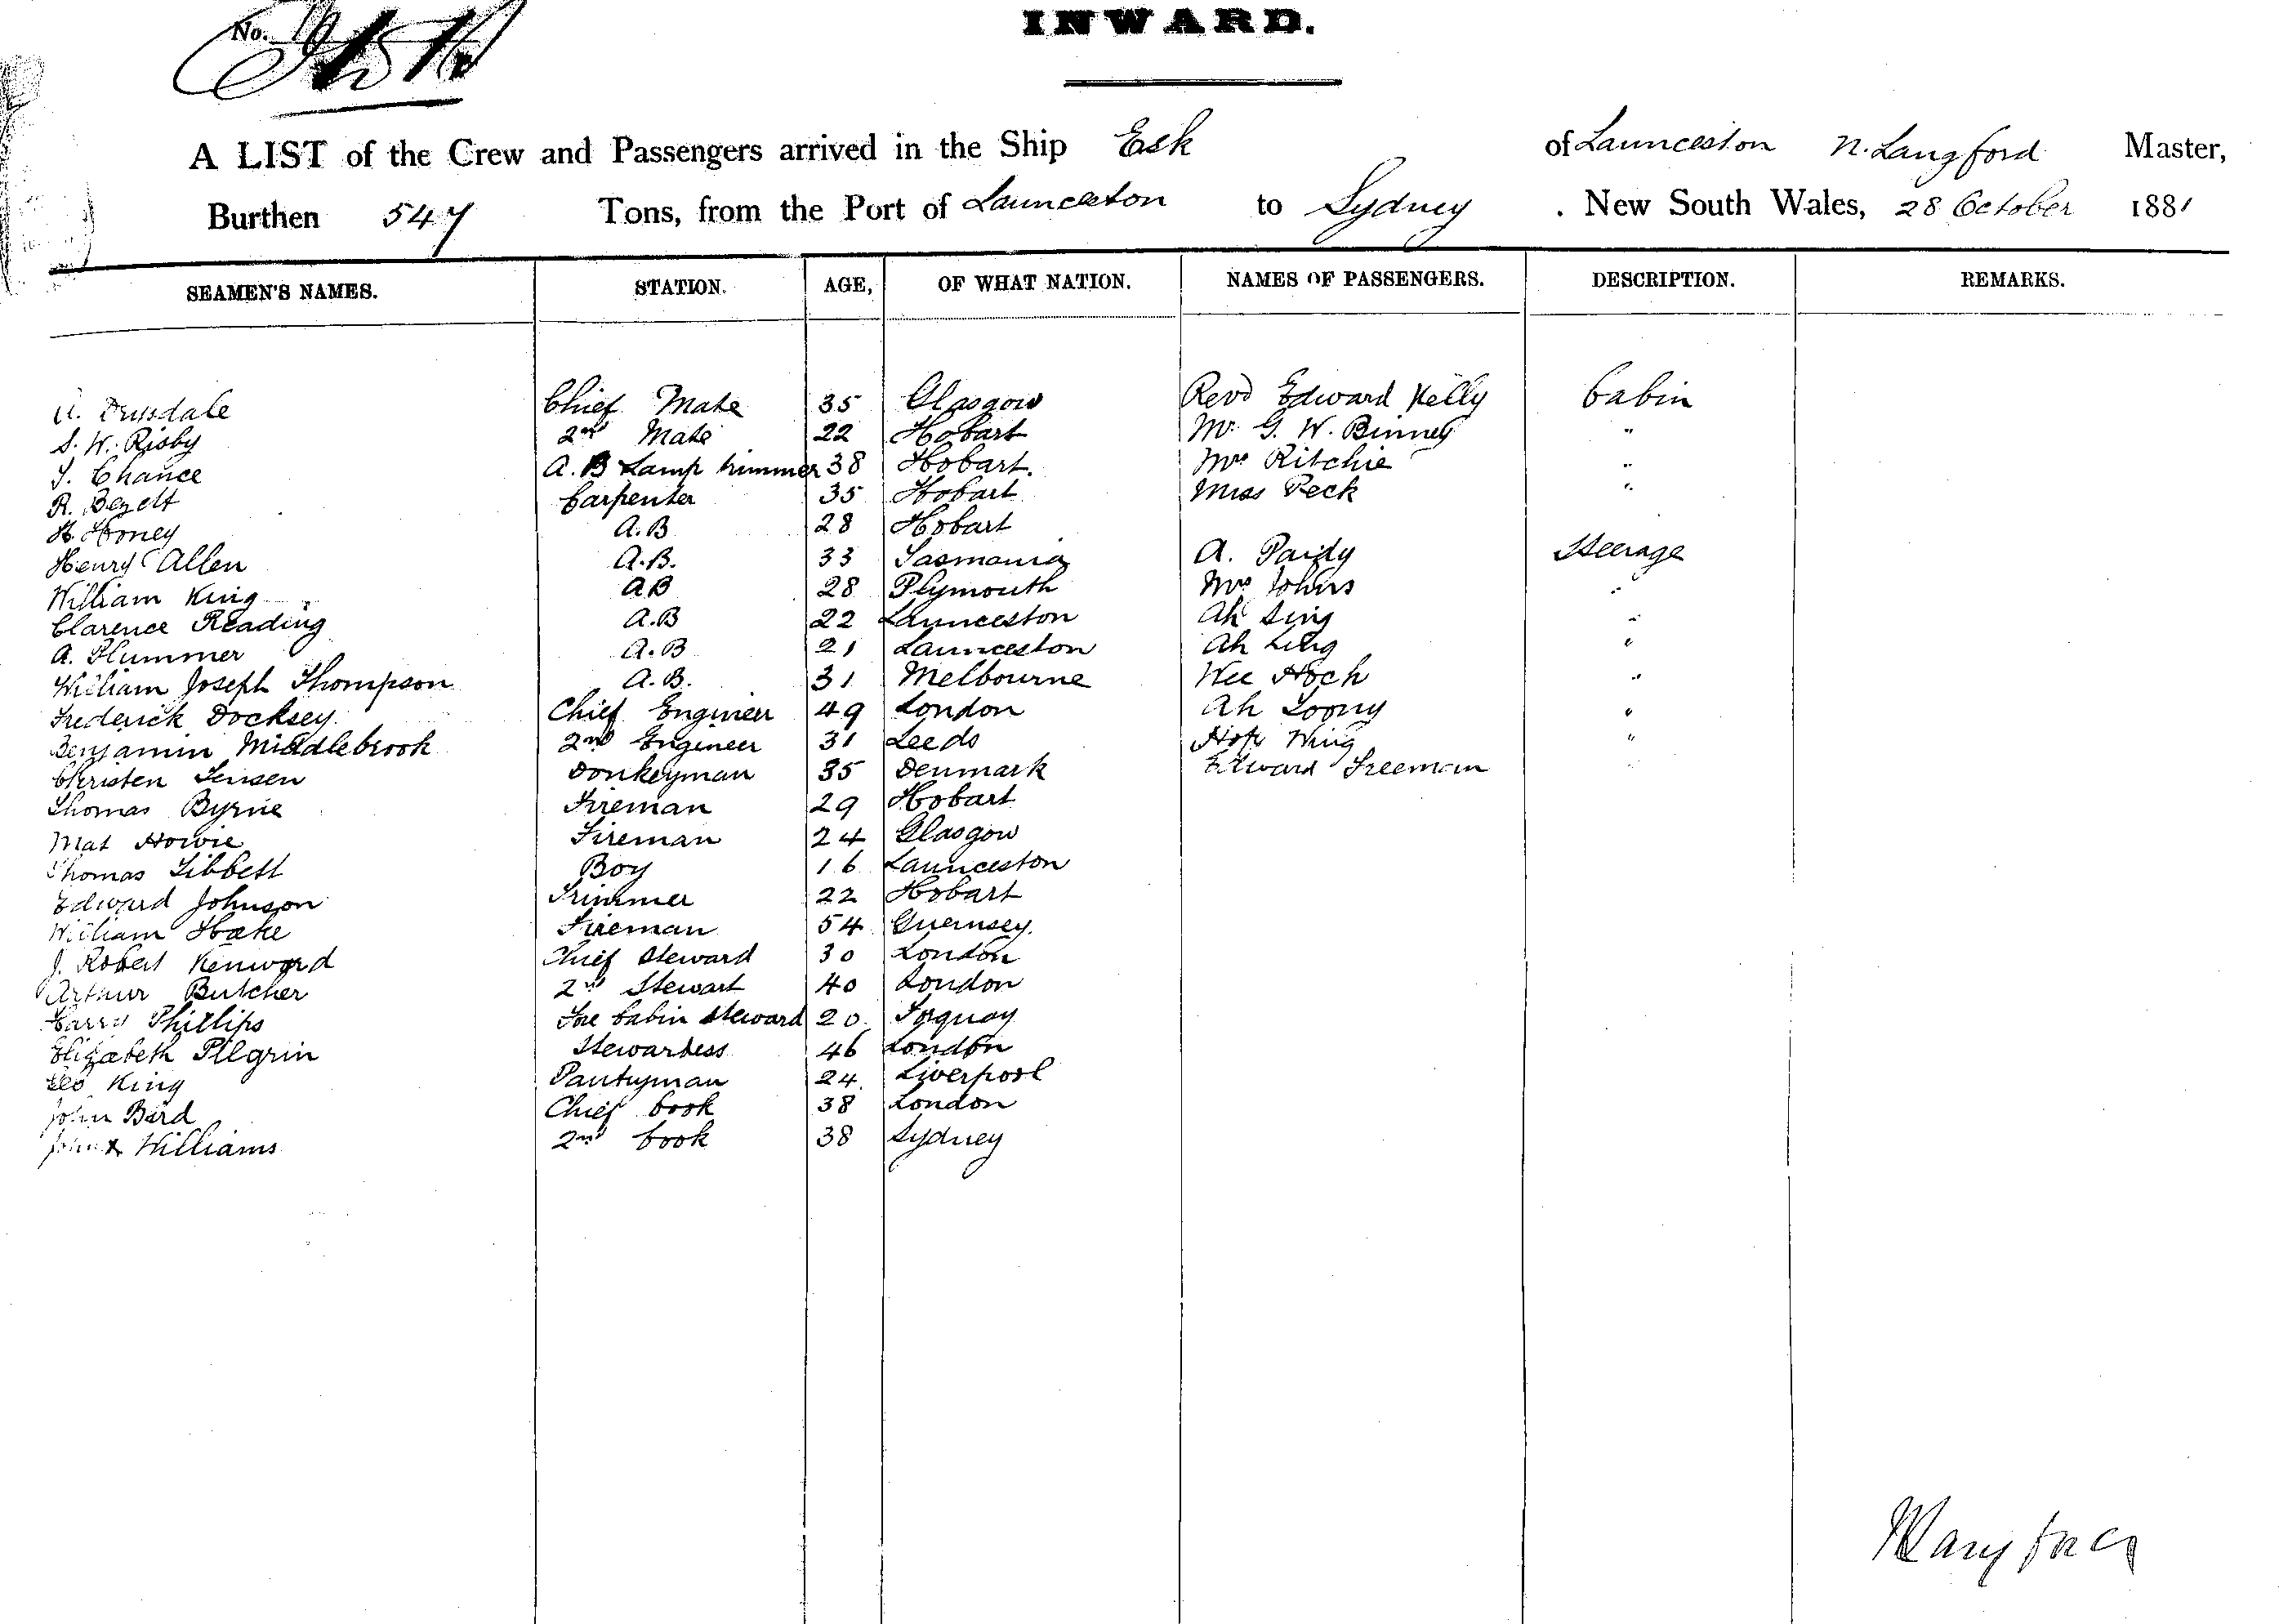 No.
INWARD.
A LIST of the Crew and Passengers arrived in the Ship Esk of Launceston N. Langford Master,
Burthen 547 Tons, from the Port of Launceston to Sydney . New South Wales, 28 October 1881
SEAMEN'S NAMES. STATION. AGE, OF WHAT NATION. NAMES OF PASSENGERS. DESCRIPTION. REMARKS.
Drysdale Chief Mate 35 Glasgow Revd Edward Kelly Cabin
S. W. Risby 2nd Mate 22 Hobart Mr G. W. Binney "
J. Chance A. B Lamp trimmer 38 Hobart. Mrs Ritchie "
R. Bezett Carpenter 35 Hobart Miss Peck "
H. Honey A.B 28 Hobart
Henry Allen A.B. 33 Tasmania A. Pardy Steerage
William King AB 28 Plymouth Mrs Johns "
Clarence Reading A.B 22 Launceston Ah Sing "
A. Plummer A.B 21 Launceston Ah Ling "
William Joseph Thompson A.B. 31 Melbourne Wee Hock "
Frederick Docksey Chief Engineer 49 London Ah Loony "
Benjamin Middlebrook 2nd Engineer 31 Leeds Hop Wing "
Christen Jensen Donkeyman 35 Denmark Edward Freeman "
Thomas Byrne Fireman 29 Hobart
Mat Howie Fireman 24 Glasgow
Thomas Tibbett Boy 16 Launceston
Edward Johnson Trimmer 22 Hobart
William Hake Fireman 54 Guernsey.
J. Robert Kenword Chief Steward 30 London
Arthur Butcher 2nd Stewart 40 London
Harry Phillips Fore Cabin Steward 20 Torquay
Elizabeth Pilgrin Stewardess 46 London
Geo King Pantryman 24 Liverpool
John Bird Chief Cook 38 London
John Williams 2nd Cook 38 Sydney